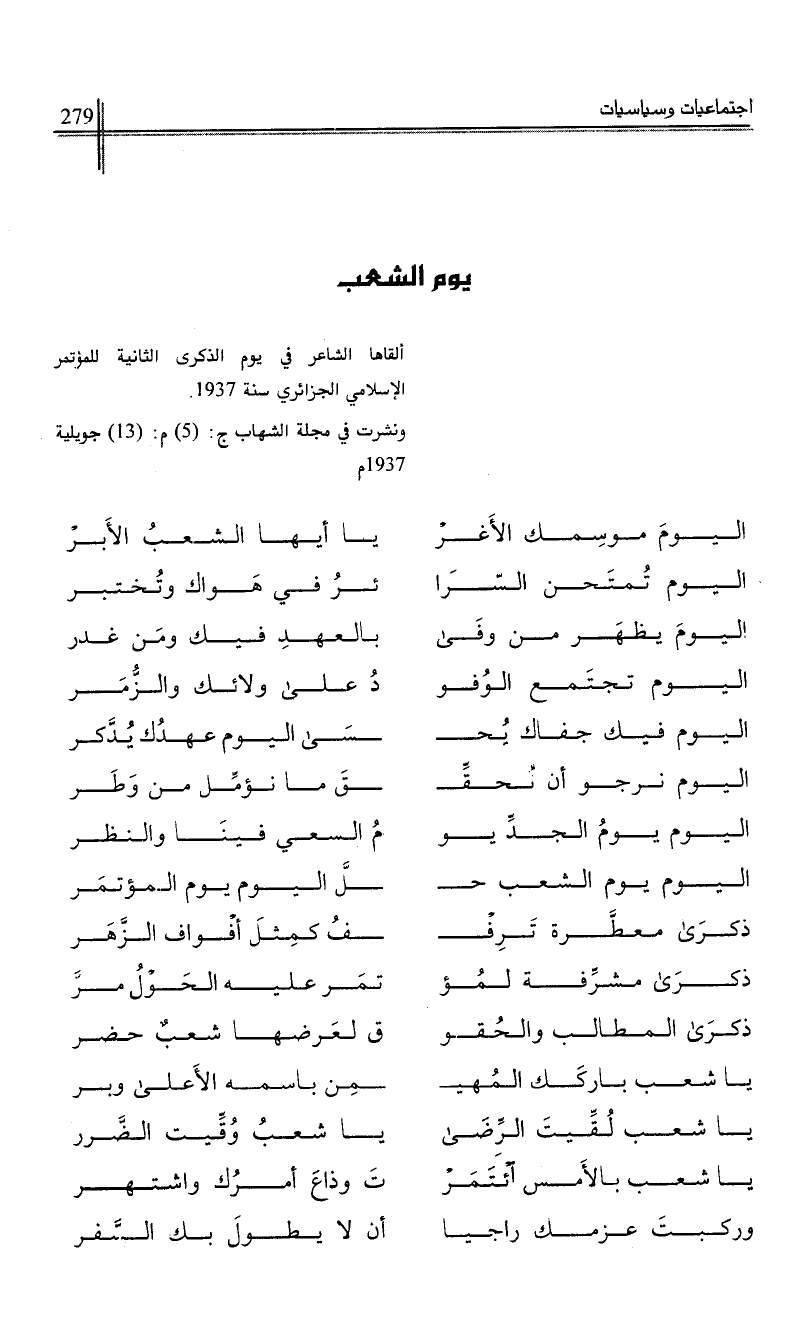 اجتماعيات وسياسيات 279
يوم الشعب
ألقاها الشاعر في يوم الذكرى الثانية للمؤتمر
الإسلامي الجزائري سنة 1937.
ونشرت في مجلة الشهاب ج: (5) م: (13) جويلية
1937م
اليومَ موسِمك الأغرْ يا أيها الشعبُ الأبرْ
اليوم تُمتَحن السَّرا ئرُ في هَواك وتُختبر
اليومَ يظهَر من وفَى بالعهدِ فيك ومَن غدر
اليوم تجتَمع الوُفو دُ على ولائك والزُّمَر
اليوم فيك جفاك يُحـ ـسَى اليوم عهدُك يُذَّكر
اليوم نرجو أن نُحقِّـ ـقَ ما نؤمِّل من وَطَر
اليوم يومُ الجدِّ يو مُ السعي فينَا والنظر
اليوم يوم الشعب حـ ـلَّ اليوم يوم المؤتمَر
ذكرَى معطَّرة تَرِفْـ ـفُ كمِثلَ أفْواف الزَّهَر
ذكرَى مشرِّفة لمُؤ تمَر عليه الحَوْلُ مرَّ
ذكرَى المطالب والحُقو ق لعَرضها شعبٌ حضر
يا شعب باركَك المُهيـ ـمِن باسمه الأعلى وبر
يا شعب لُقِّيتَ الرِّضَى يا شعبُ وُقِّيت الضَّرر
يا شعب بالأمس ٱئتَمَرْ تَ وذاعَ أمرُك واشتهر
وركبتَ عزمك راجيا أن لا يطولَ بك السَّفر